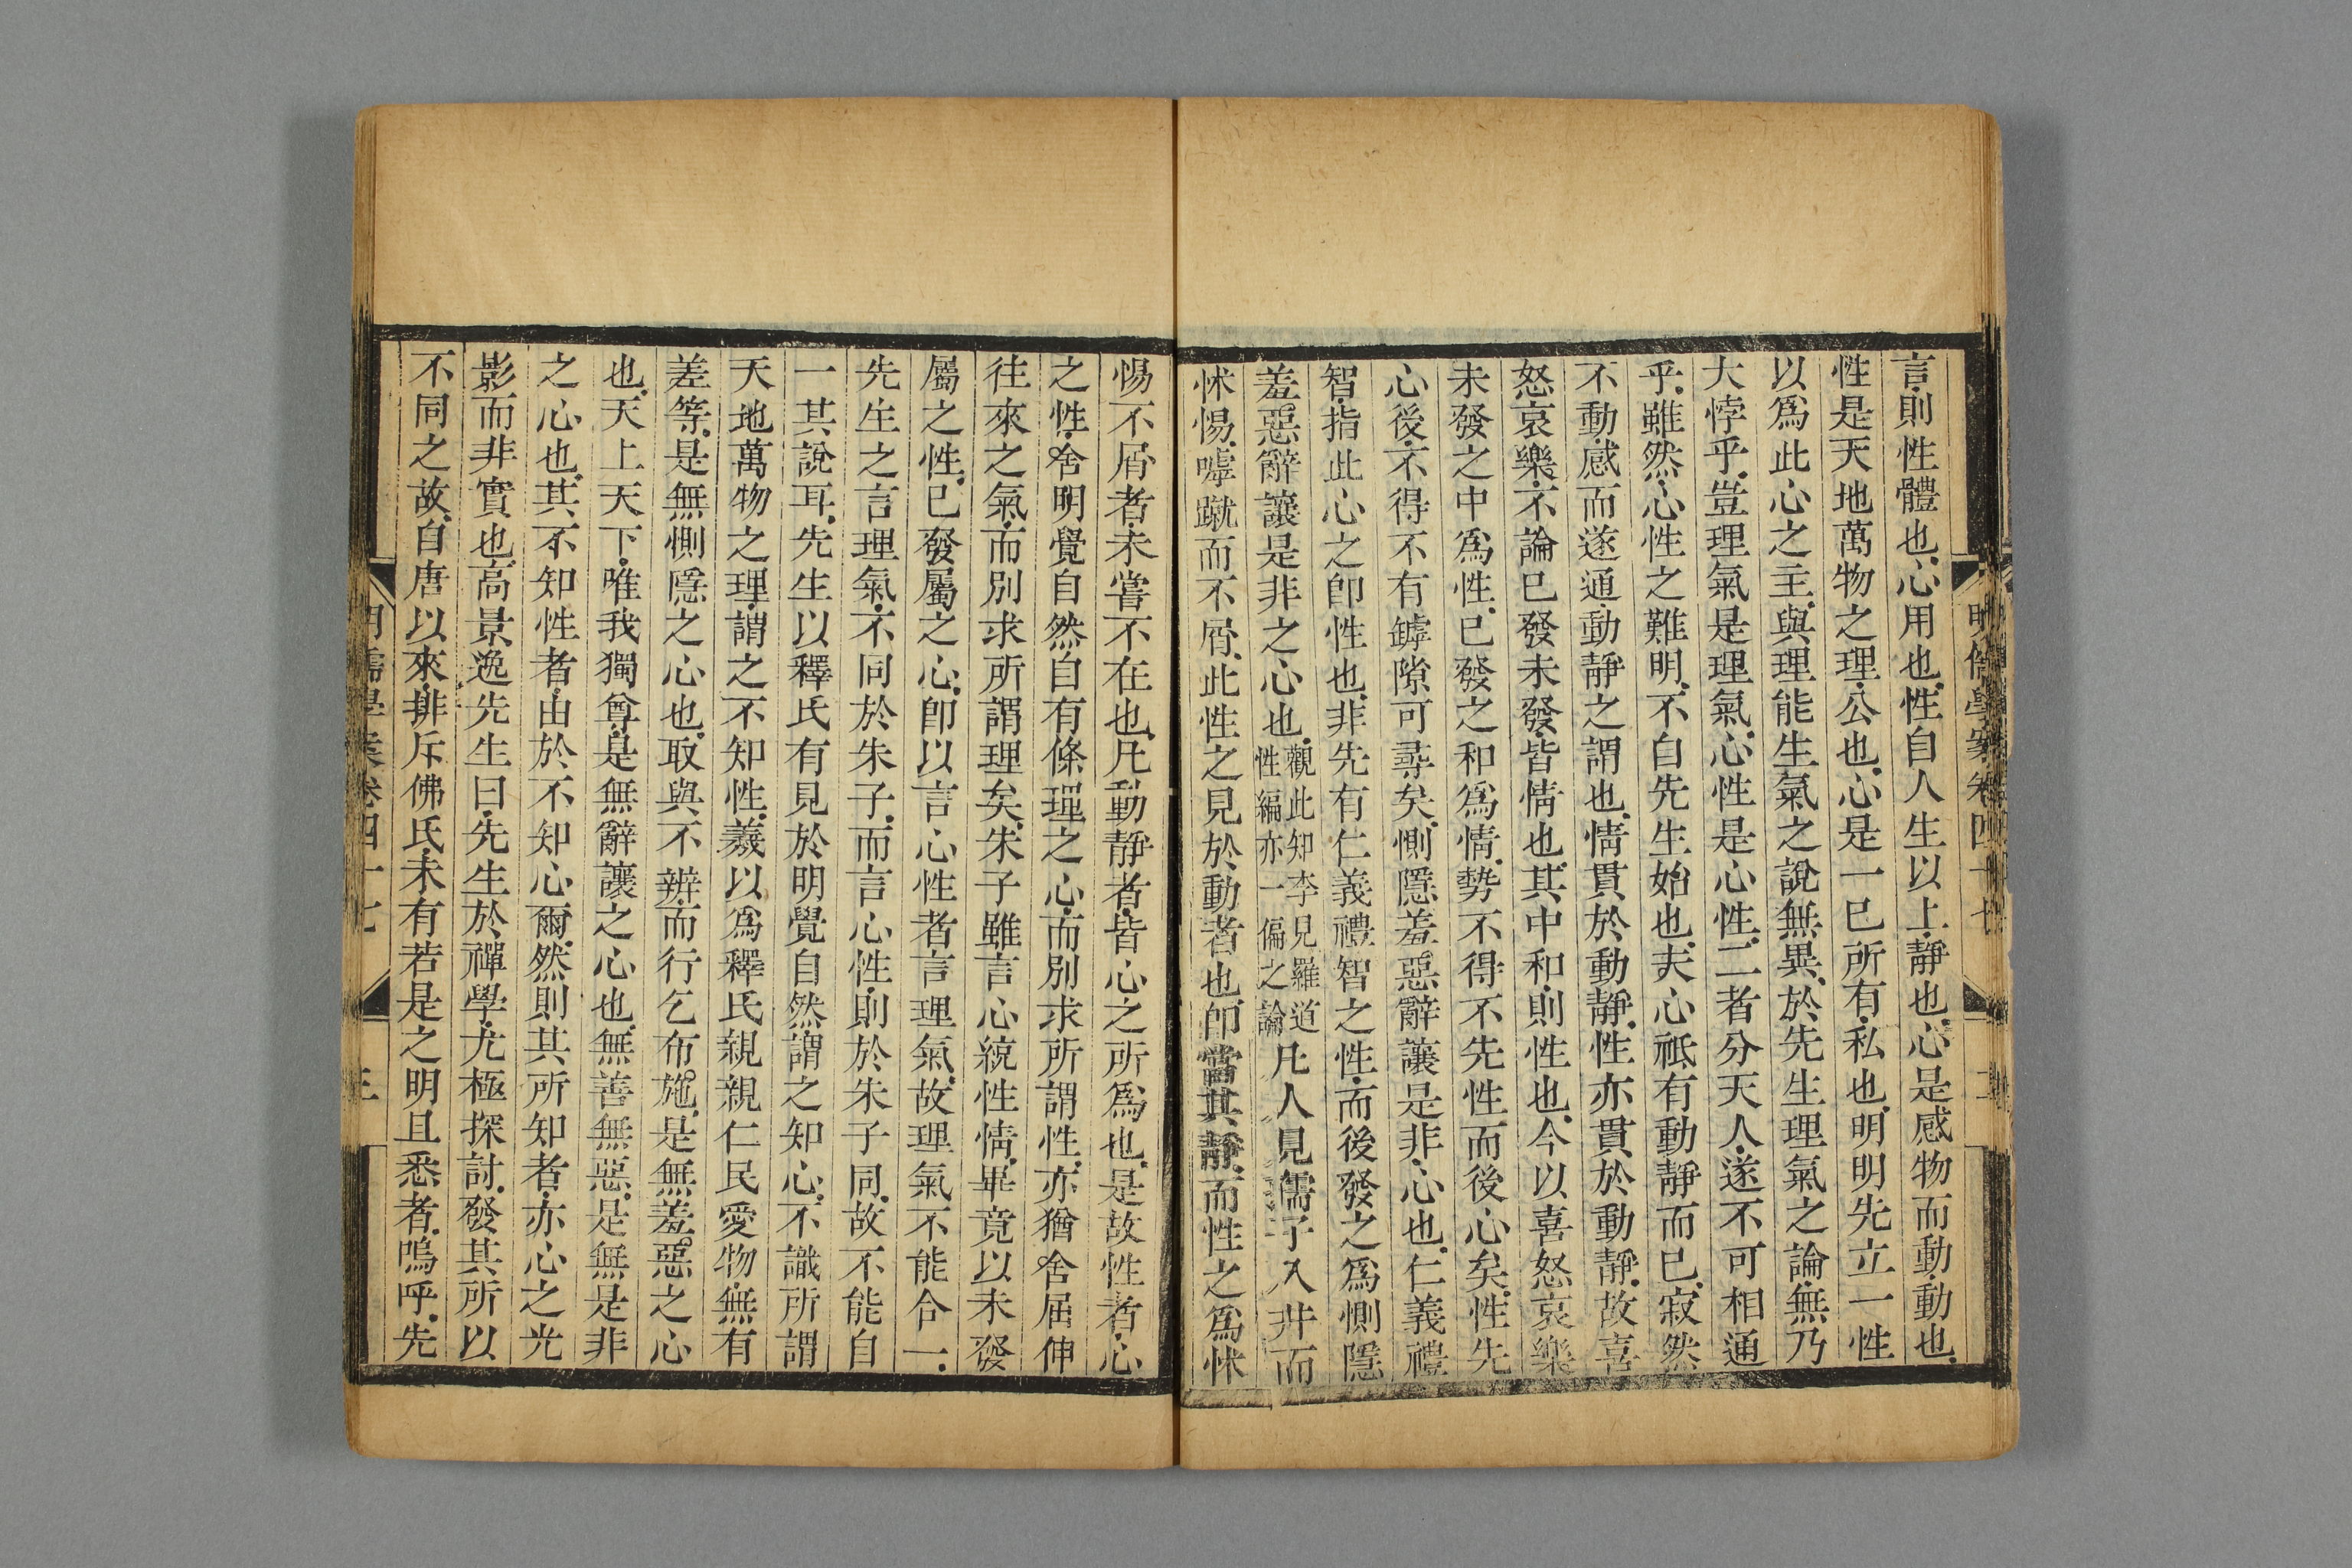 明儒學案卷四十七
二
言則性體也心用也性自人生以上靜也心是感物而動動也
性是天地萬物之理公也心是一已所有私也明明先立一性
以爲此心之主與理能生氣之說無異於先生理氣之論無乃
大悖乎豈理氣是理氣心性是心性二者分天人遂不可相通
乎雖然心性之難明不自先生始也夫心祇有動靜而已寂然
不動感而遂通動靜之謂也情貫於動靜性亦貫於動靜故喜
怒哀樂不論已發未發皆情也其中和則性也今以喜怒哀樂
未發之中爲性已發之和爲情勢不得不先性而後心矣性先
心後不得不有罅隙可尋矣惻隱羞惡辭讓是非心也仁義禮
智指此心之卽性也非先有仁義禮智之性而後發之爲惻隱
羞惡辭讓是非之心也觀此知李見羅道性編亦一偏之論凡人見儒子入井而
怵惕嘑蹴而不屑此性之見於動者也卽當其靜而性之爲怵
惕不屑者未嘗不在也凡動靜者皆心之所爲也是故性者心
之性舍明覺自然自有條理之心而別求所謂性亦猶舍屈伸
往來之氣而別求所謂理矣朱子雖言心統性情畢竟以未發
屬之性已發屬之心卽以言心性者言理氣故理氣不能合一
先生之言理氣不同於朱子而言心性則於朱子同故不能自
一其說耳先生以釋氏有見於明覺自然謂之知心不識所謂
天地萬物之理謂之不知性羲以爲釋氏親親仁民愛物無有
差等是無惻隱之心也取與不辨而行乞布施是無羞惡之心
也天上天下唯我獨尊是無辭讓之心也無善無惡是無是非
之心也其不知性者由於不知心爾然則其所知者亦心之光
影而非實也高景逸先生曰先生於禪學尤極探討發其所以
不同之故自唐以來排斥佛氏未有若是之明且悉者嗚呼先
明儒學案卷四十七
三